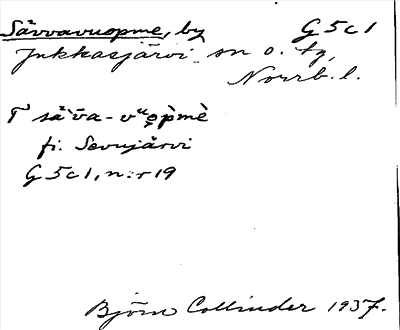 Sävvavuopme, by G 5 c 1
Jukkasjärvi sn o. tg,
Norrb. l.
T sä̀v̄a - vᵘo̬pmè
fi. Sevujärvi
G 5 c 1, n:r 19
Björn Collinder 1937.